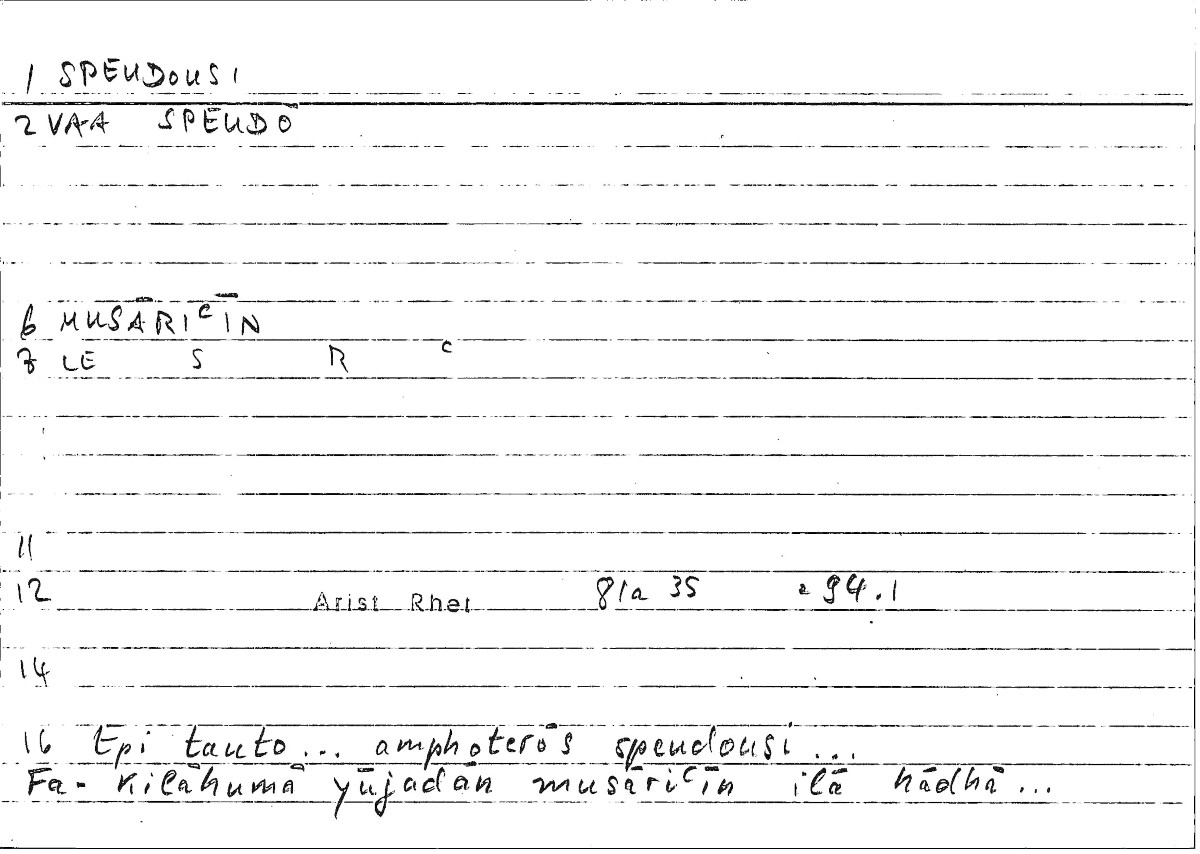 1 SPEUDOUSI
2 VAA SPEUDŌ
6 MUSĀRIᶜĪN
7 LE S R ᶜ
11
12 Arist Rhet 81a 35 = 94.1
14
16 Epi tauto... amphoterōs speudousi...
Fa-kilāhumā yūjadān musāriᶜīn ilā hādhā...